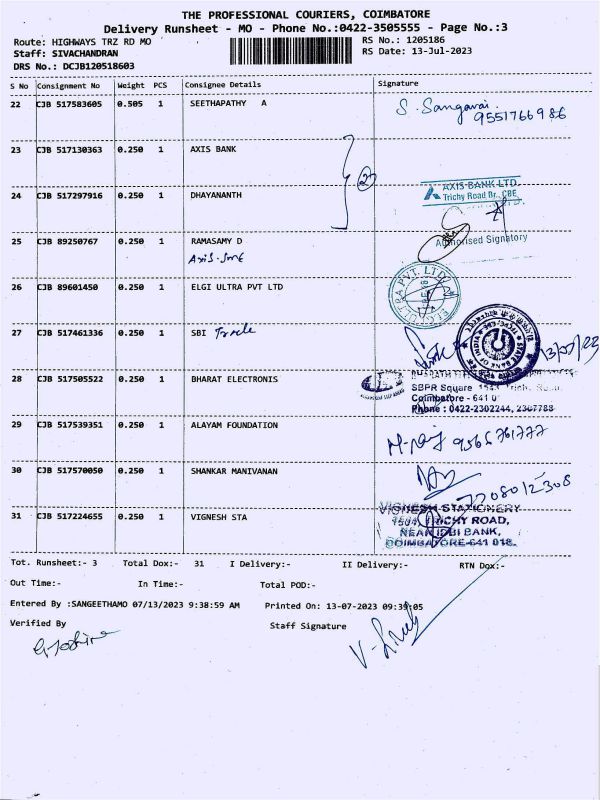 THE PROFESSIONAL COURIERS, COIMBATORE
Delivery Runsheet - MO - Phone No.:0422-3505555 - Page No.:3
Route: HIGHWAYS TRZ RD MO
RS No.: 1205186
Staff: SIVACHANDRAN
RS Date: 13-Jul-2023
DRS No.: DCJB120518603
S No Consignment No Weight PCS Consignee Details Signature
22 CJB 517583605 0.505 1 SEETHAPATHY A S. Sangavai
9551766986
23 CJB 517130363 0.250 1 AXIS BANK
2
24 CJB 517297916 0.250 1 DHAYANANTH
AXIS BANK LTD.
Trichy Road Br., CBE
25 CJB 89250767 0.250 1 RAMASAMY D
Authorised Signatory
Axis
26 CJB 89601450 0.250 1 ELGI ULTRA PVT LTD
ELGI ULTRA PVT. LTD.
27 CJB 517461336 0.250 1 SBI Trade
STATE BANK OF INDIA
13/07/23
28 CJB 517505522 0.250 1 BHARAT ELECTRONIS
SBPR Square
Coimbatore - 641 0
Phone : 0422-2302244, 2367788
29 CJB 517539351 0.250 1 ALAYAM FOUNDATION
30 CJB 517570050 0.250 1 SHANKAR MANIVANAN
31 CJB 517224655 0.250 1 VIGNESH STA
VIGNESH STATIONERY
1504, TRICHY ROAD,
NEAR IDBI BANK,
COIMBATORE-641 018.
Tot. Runsheet:- 3 Total Dox:- 31 I Delivery:- II Delivery:- RTN Dox:-
Out Time:- In Time:- Total POD:-
Entered By :SANGEETHAMO 07/13/2023 9:38:59 AM Printed On: 13-07-2023 09:39:05
Verified By Staff Signature